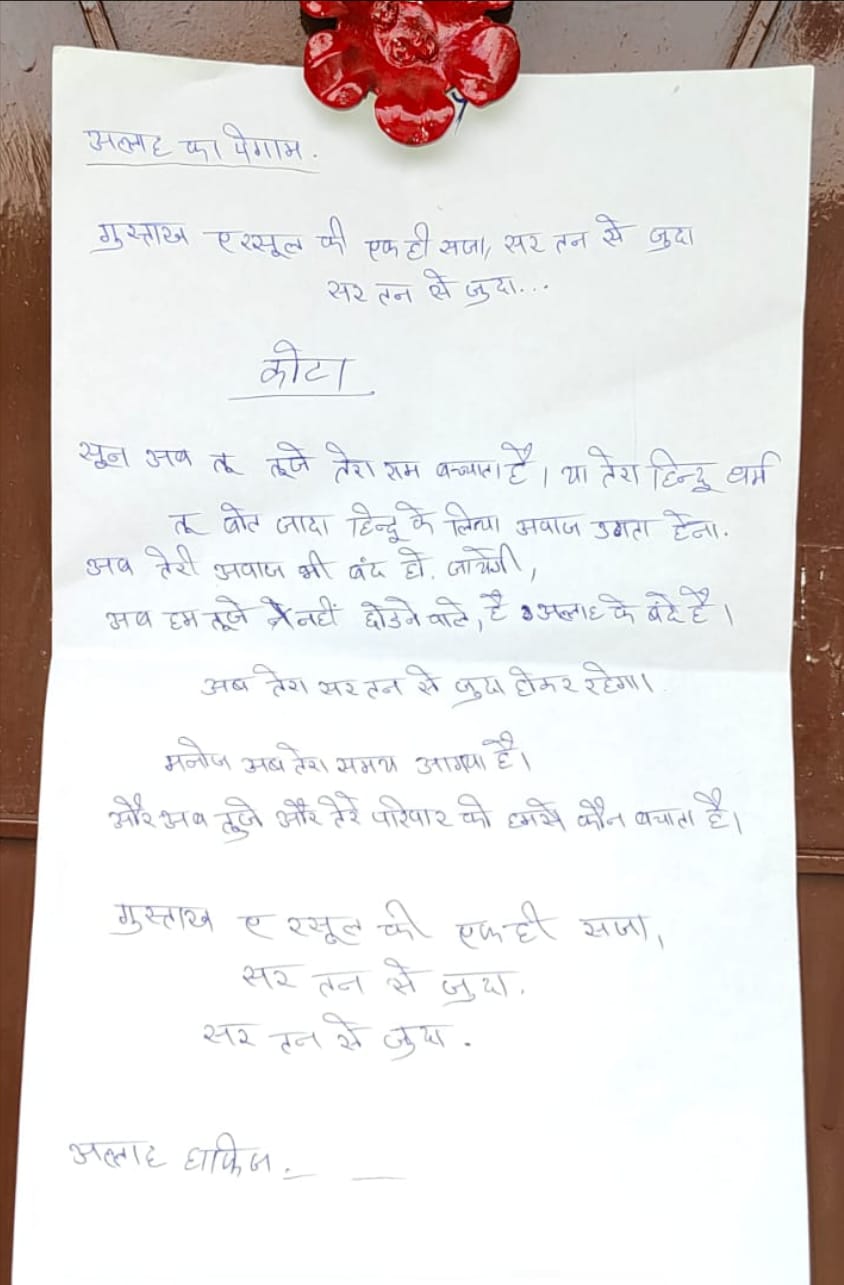 अल्लाह का पेगाम.
गुस्ताख ए रसूल की एक ही सजा, सर तन से जुदा
सर तन से जुदा...
कोटा
सून अब तू तूजे तेरा राम बच्चाता है। या तेरा हिन्दू धर्म
तू बोत जादा हिन्दू के लिया अवाज उठाता हेना.
अब तेरी अवाज भी बंद हो. जायेगी,
अब हम तूजे नहीं छोडने वाले, है अल्लाह के बंदे है।
अब तेरा सर तन से जुदा होकर रहेगा।
मनोज अब तेरा समय आगया है।
और अब तूजे और तेरे परिवार को हमसे कौन बचाता है।
गुस्ताख ए रसूल की एक ही सजा,
सर तन से जुदा.
सर तन से जुदा.
अल्लाह हाफिज.